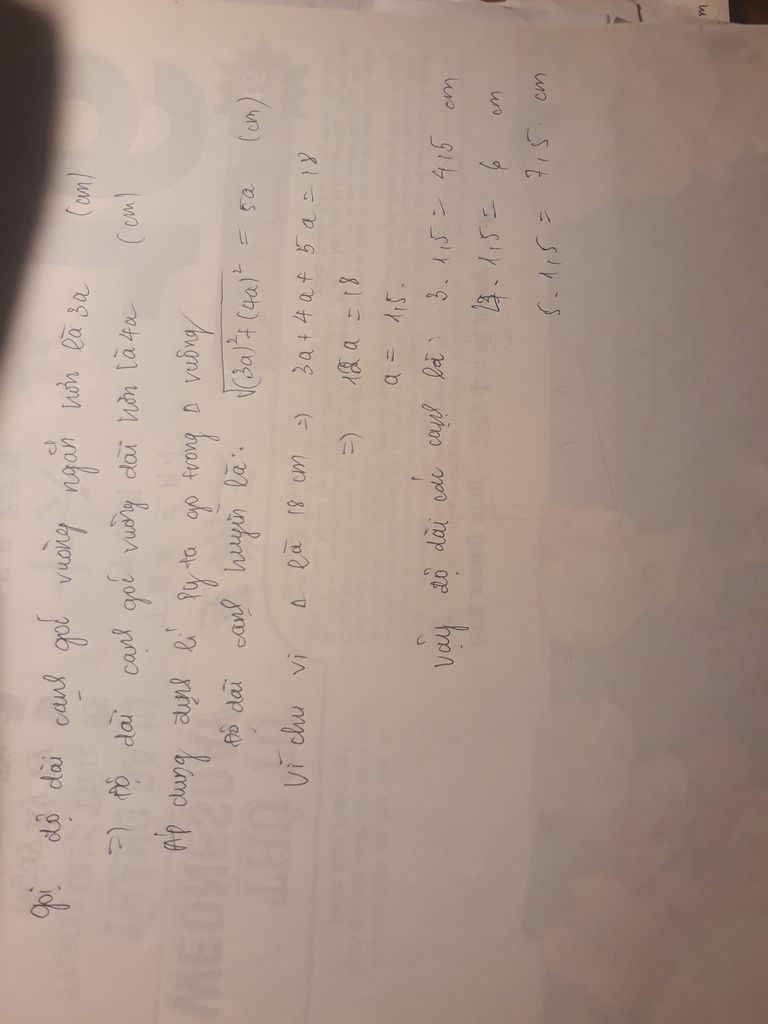 Gọi độ dài cạnh góc vuông ngắn hơn là 3a (cm)
=) Độ dài cạnh góc vuông dài hơn là 4a (cm)
Áp dụng định lí Py ta go trong Δ vuông
Độ dài cạnh huyền là: √(3a)²+(4a)² = 5a (cm)
Vì chu vi Δ là 18 cm =) 3a+4a+5a=18
=) 12a=18
a=1,5.
Vậy độ dài các cạnh là: 3.1,5=4,5 cm
4.1,5= 6 cm
5.1,5= 7,5. cm
WEDNESDAY
THỨ TƯ